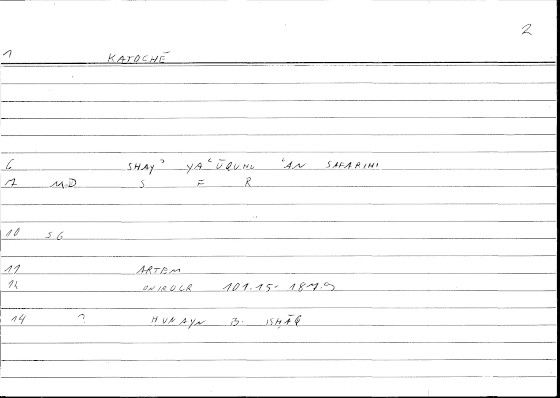 2
1 KATOCHĒ
6 SHAYʾ YAʿŪQUHU ʿAN SAFARIHI
7 MD S F R
10 SG
11 ARTEM
12 ONIROCR 101.15-
14 ? HUNAYN B. ISHĀQ